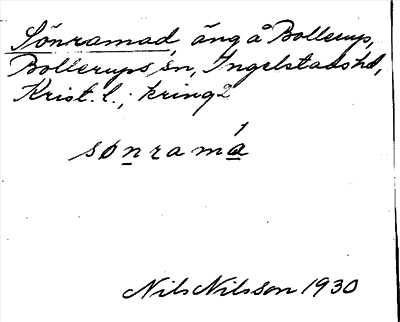 Sönramad, äng å Bollerup,
Bollerups sn, Ingelstads hd,
Krist. l.; kring 2
sønramá 1
Nils Nilsson 1930